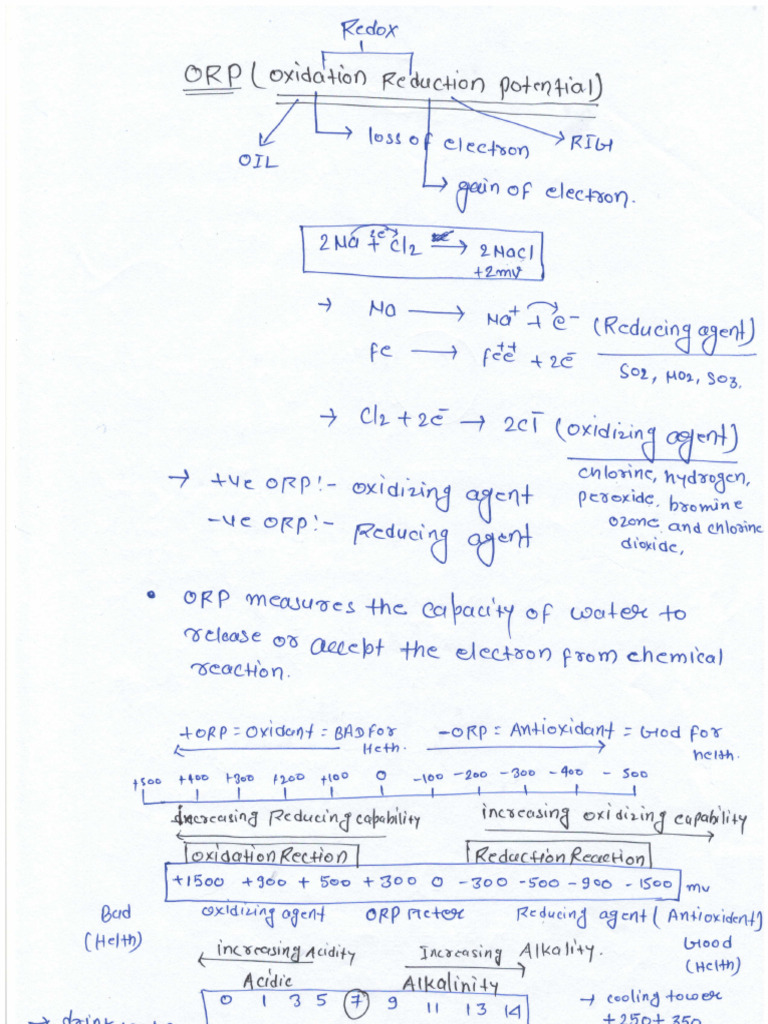 Redox
ORP (Oxidation Reduction Potential)
OIL
loss of electron
RIG
gain of electron.
2Na + Cl2 → 2NaCl
2e⁻
+2mv
→ Na → Na⁺ + e⁻ (Reducing agent)
Fe → Fe⁺⁺ + 2e⁻
SO2, NO2, SO3.
→ Cl2 + 2e⁻ → 2Cl⁻ (oxidizing agent)
chlorine, hydrogen,
peroxide. bromine
ozone. and chlorine
dioxide,
→ +ve ORP:- oxidizing agent
-ve ORP:- Reducing agent
• ORP measures the capacity of water to
release or accept the electron from chemical
reaction.
+ORP = Oxidant = BAD For
Heth.
-ORP = Antioxidant = Good For
helth.
+500 +400 +300 +200 +100 0 -100 -200 -300 -400 -500
increasing Reducing capability
increasing oxidizing capability
oxidation Rection
Reduction Reaction
+1500 +900 +500 +300 0 -300 -500 -900 -1500 mv
Bad
(Helth)
oxidizing agent ORP Meter Reducing agent (Antioxident)
Good
(Helth)
increasing Acidity
Increasing Alkality.
Acidic Alkalinity
0 1 3 5 7 9 11 13 14
→ cooling tower
+250+350
→ drink